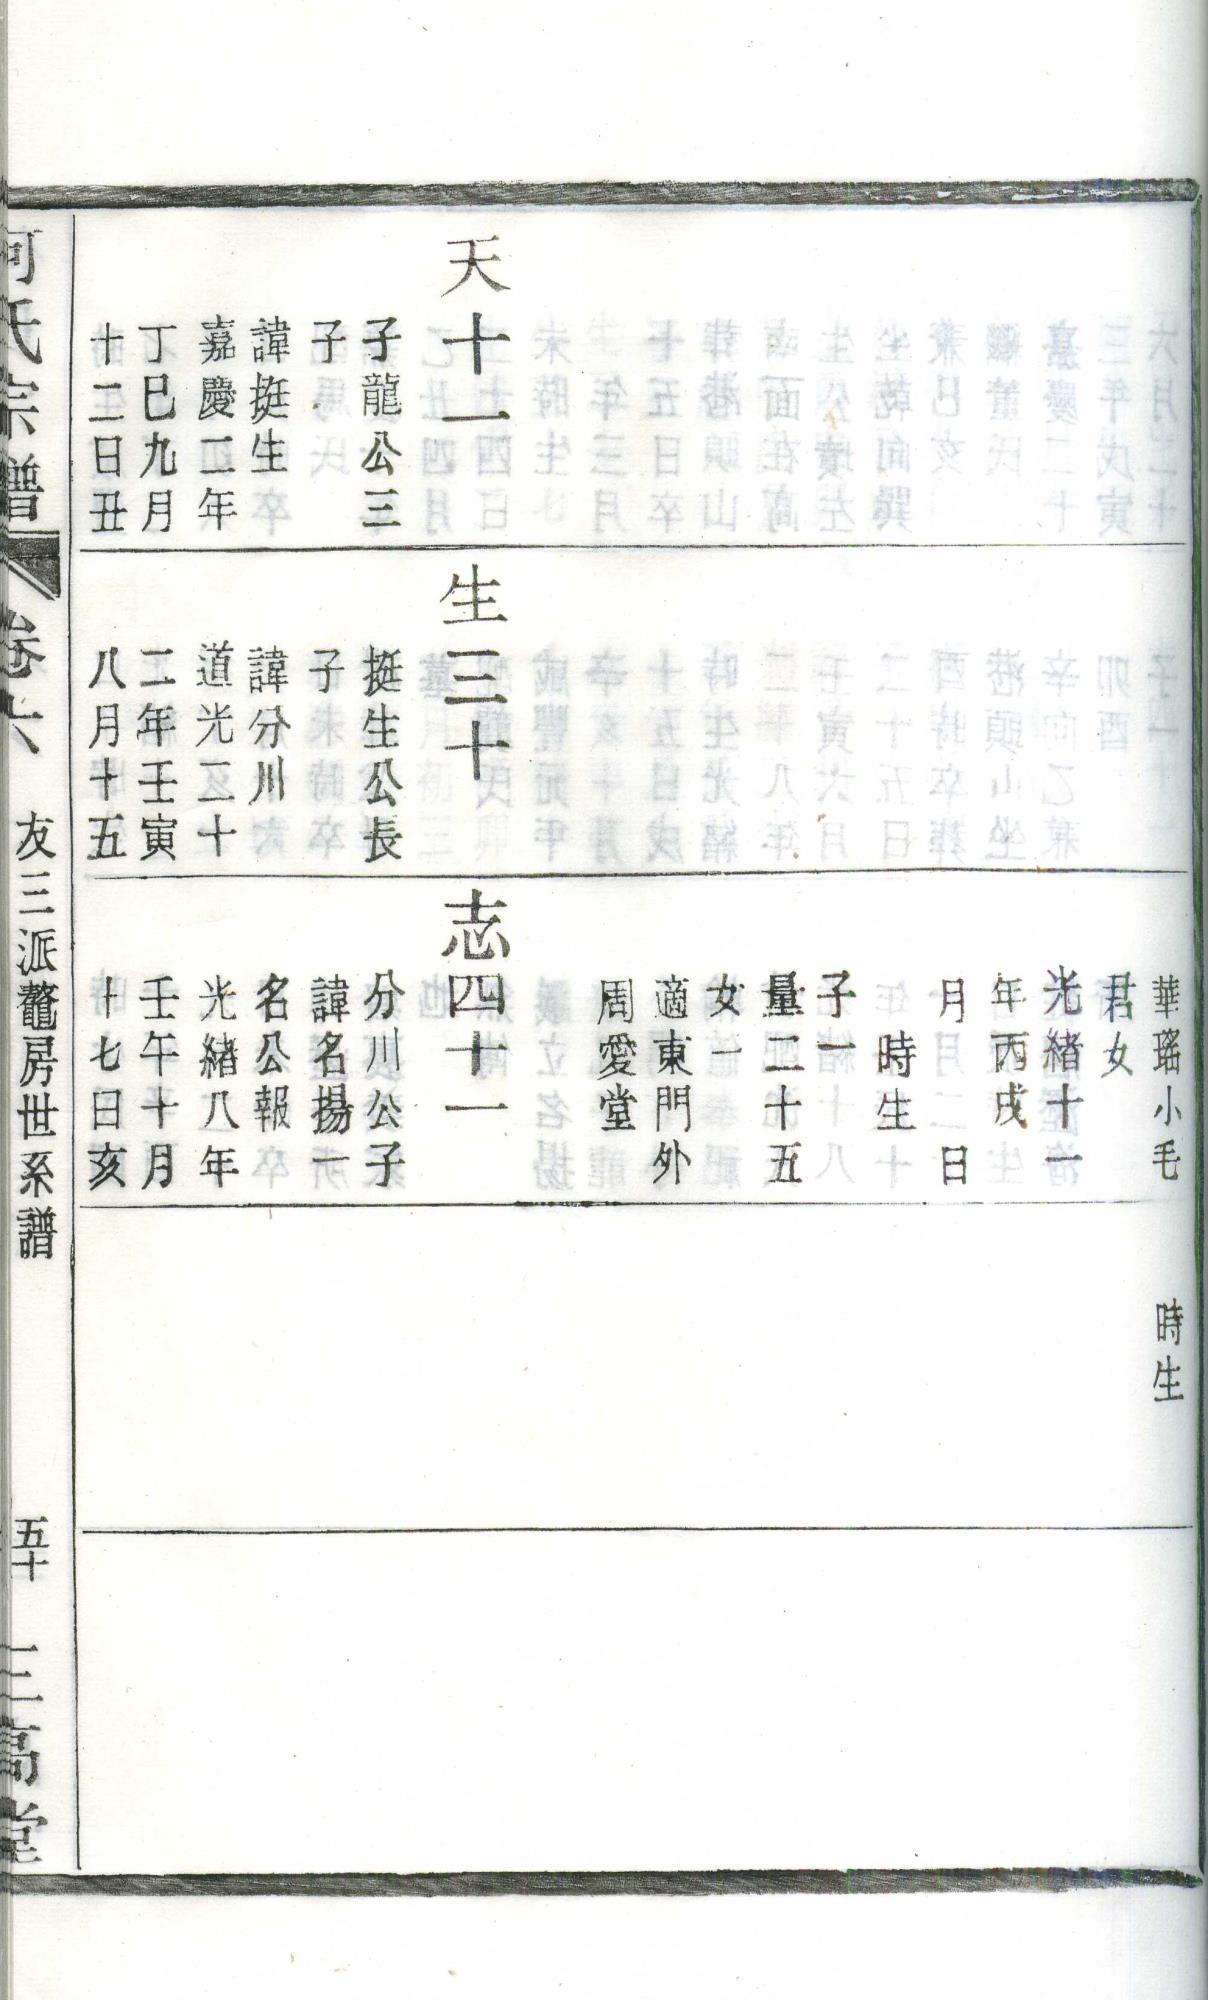 天十一
子龍公三
子
諱挺生
嘉慶二年
丁巳九月
十二日丑
生三十
挺生公長
子
諱分川
道光二十
二年壬寅
八月十五
華瑤小毛
君女
光緒十一
年丙戌
月　日
時生
子一
量二十五
女一
適東門外
周愛堂
志四十一
分川公子
諱名揚一
名公報
光緒八年
壬午十月
十七日亥
時生
何氏宗譜
卷六
友三派鼇房世系譜
五十
三高堂